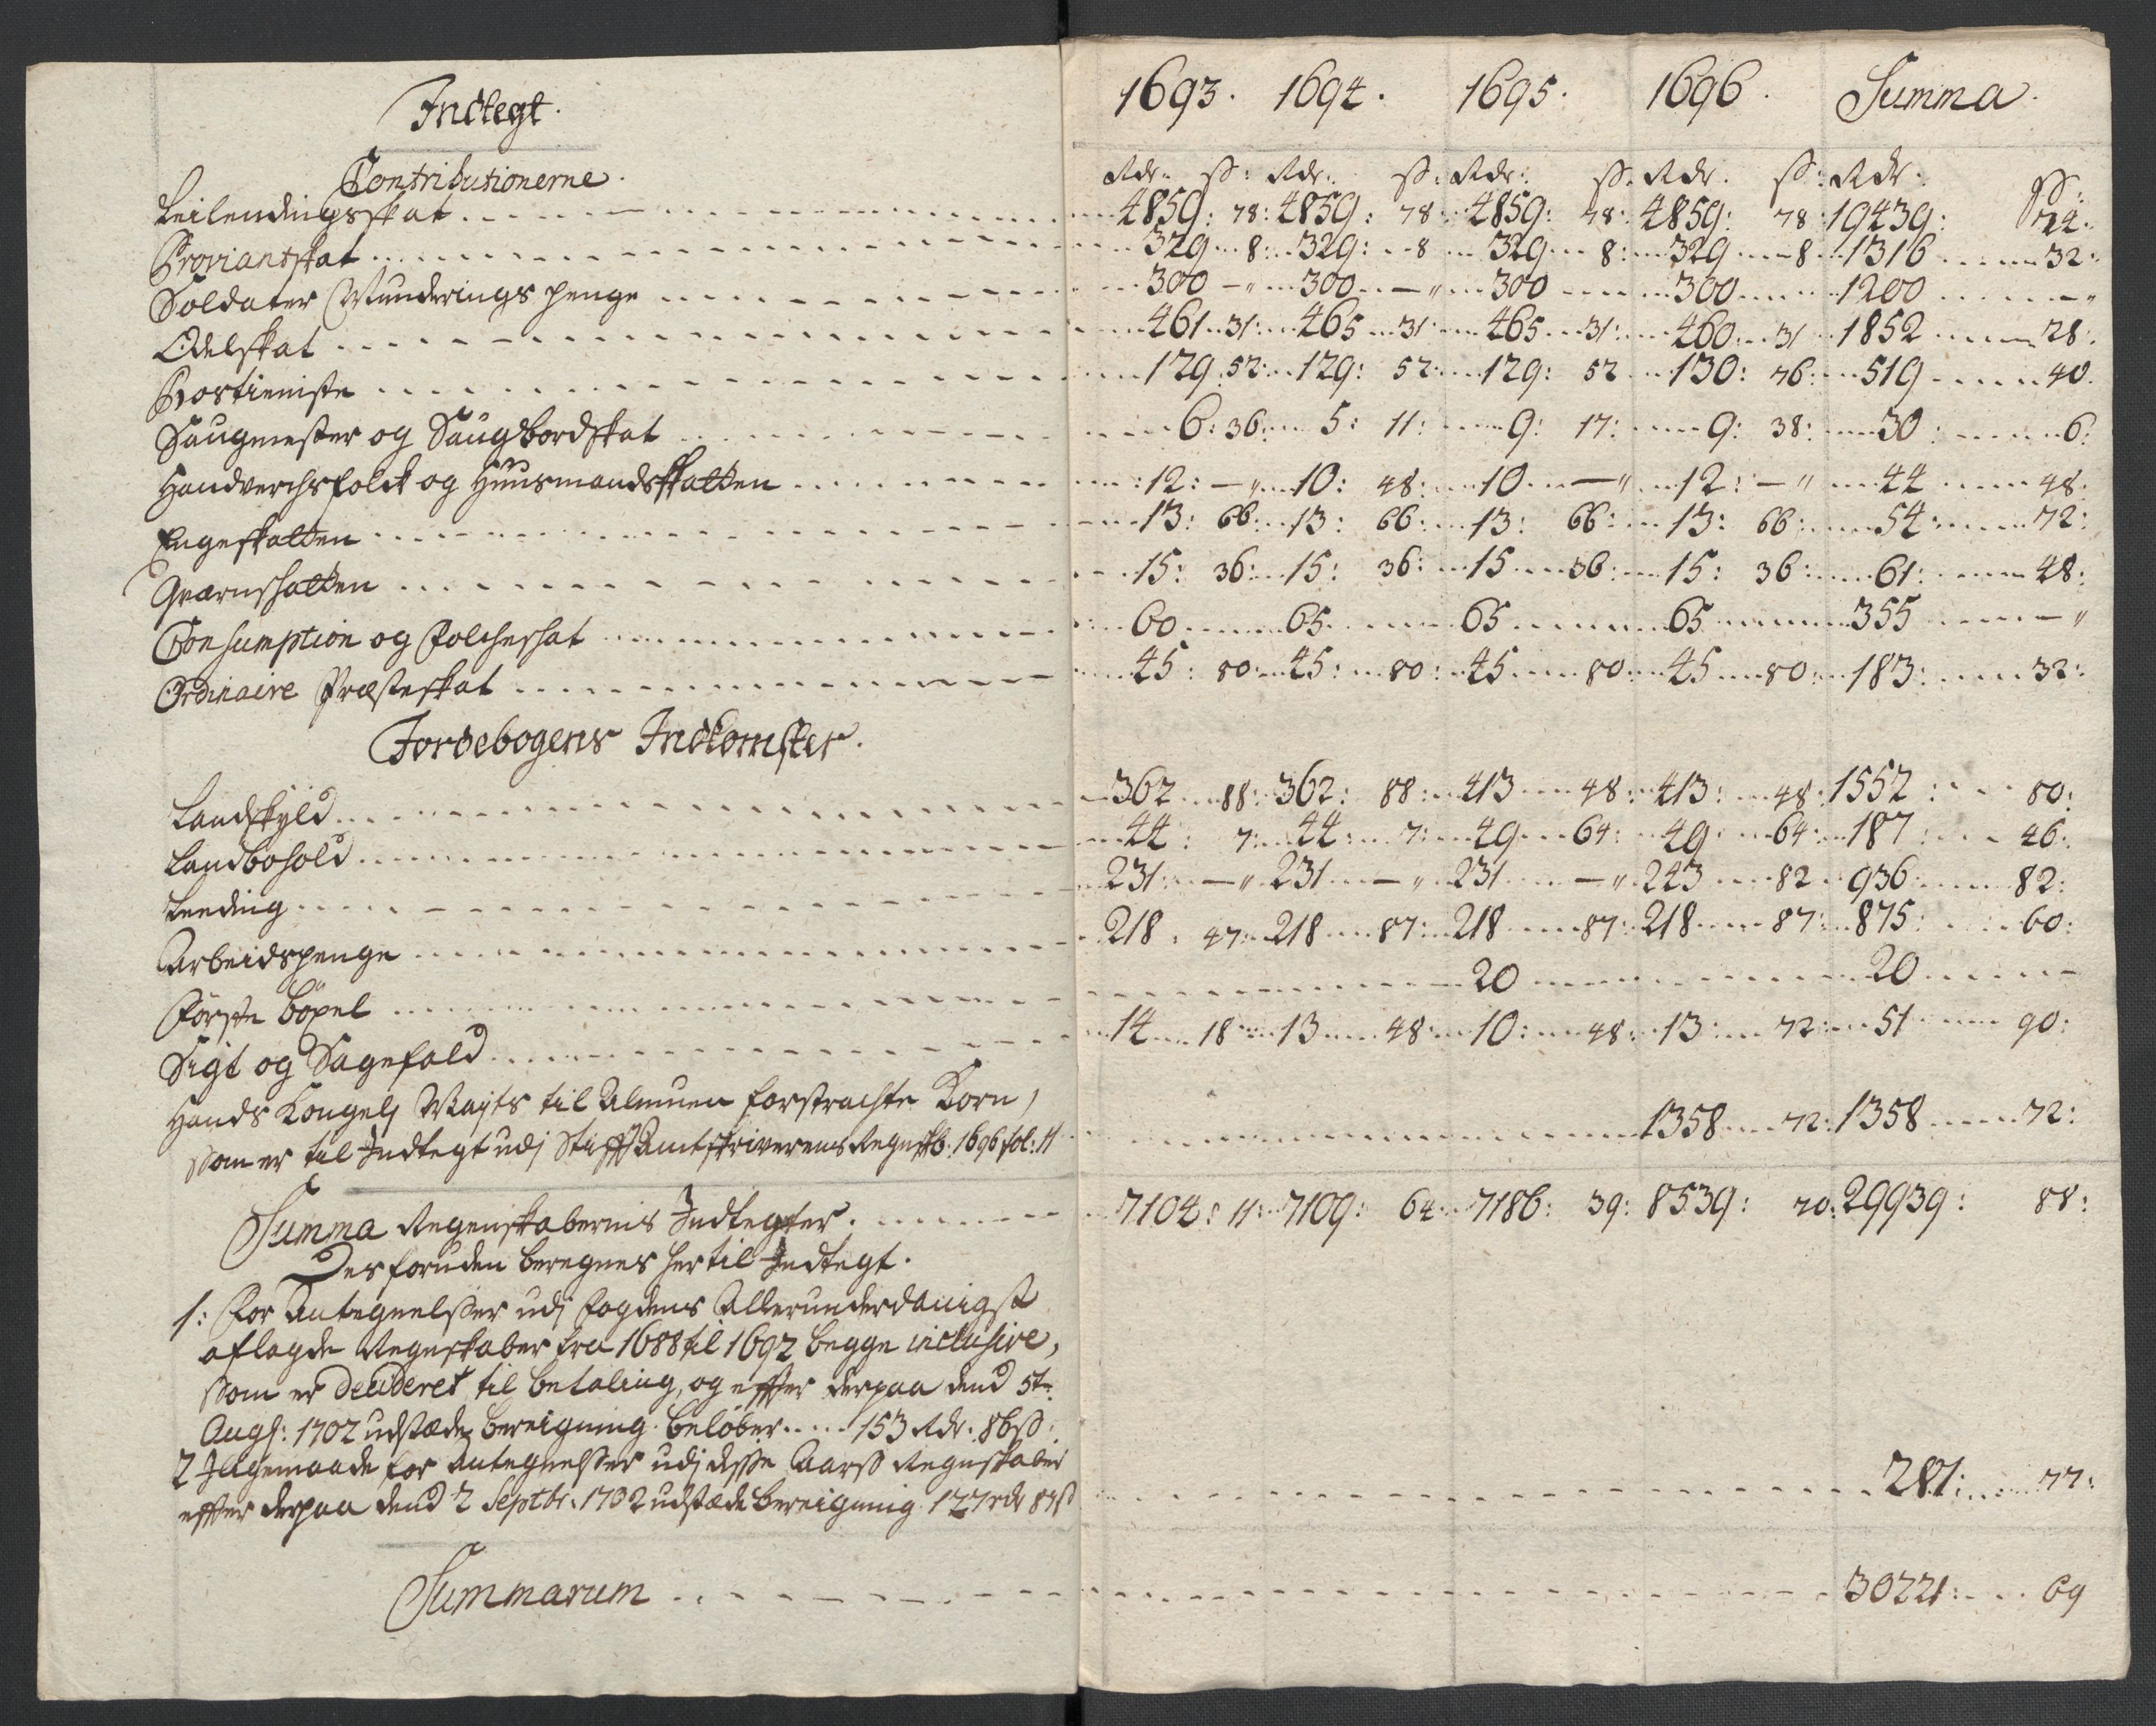 Indtegt. 1693. 1694. 1695. 1696. Summa.
Contributionerne. Rdr. ß: Rdr. ß: Rdr: ß. Rdr. ß: Rdr. ß:
Leilendingsskat 4859: 78: 4859: 78: 4859: 78: 4859: 78: 19439: 24:
Proviantskat 329 8: 329: 8 329 8: 329 8 1316 32:
Soldater Munderings penge 300 — 300 — 300 300 1200 —
Odelskat 461 31: 465 31 465 31: 460 31 1852 28:
Rostieniste 129: 52: 129: 52: 129: 52 130: 76: 519 40.
Saugmester og Saugbordskat 6: 36: 5: 11: 9: 17: 9: 38: 30: 6:
Handverchsfolck og Huusmandsskatten 12: — 10: 48: 10 — 12: — 44 48:
Engeskatten 13: 66: 13: 66: 13: 66: 13: 66: 54: 72:
Qværnskatten 15: 36: 15: 36: 15 36: 15: 36: 61: 48:
Consumption og Folcheskat 60 65 65 65 355 —
Ordinaire Præsteskat 45: 80: 45: 80: 45 80: 45 80: 183: 32:
Jordebogens Indkomster.
Landskyld 362 88: 362: 88: 413 48: 413: 48: 1552: 80:
Landbohold 44: 7: 44: 7: 49 64: 49: 64: 187: 46:
Leeding 231: — 231 — 231 — 243 82 936: 82:
Arbeidspenge 218: 47: 218 87: 218 87: 218 87: 875: 60:
Förste böxel 20 20 —
Sigt og Sagefald 14 18 13 48: 10: 48: 13: 72: 51 90:
Hands Kongel Mayts til Almuen forstrachte Korn,
som er til Indtegt udj Stifft Amtskriverens Regnskb: 1696 fol: 11 1358 72: 1358 72:
Summa Regenskabernis Indtegter. 7104: 11: 7109: 64 7186: 39: 8539: 70: 29939: 88:
Desforuden beregnes her til Indtegt.
1: For Antegnelsser udj fogdens Allerunderdanigst
aflagde Regnskaber fra 1688 til 1692 begge inclusive,
som er decideret til betaling, og efter derpaa dend 5te
Aug: 1702 udstæde bereigning. belöber 153 Rdr. 86 ß.
2 Jligemaade for Antegnelsser udj disse Aarss Regnskaber
efter derpaa dend 2 Septbr: 1702 udstæde bereigning 127 rdr 87 ß 281: 77:
Summarum 30221: 69